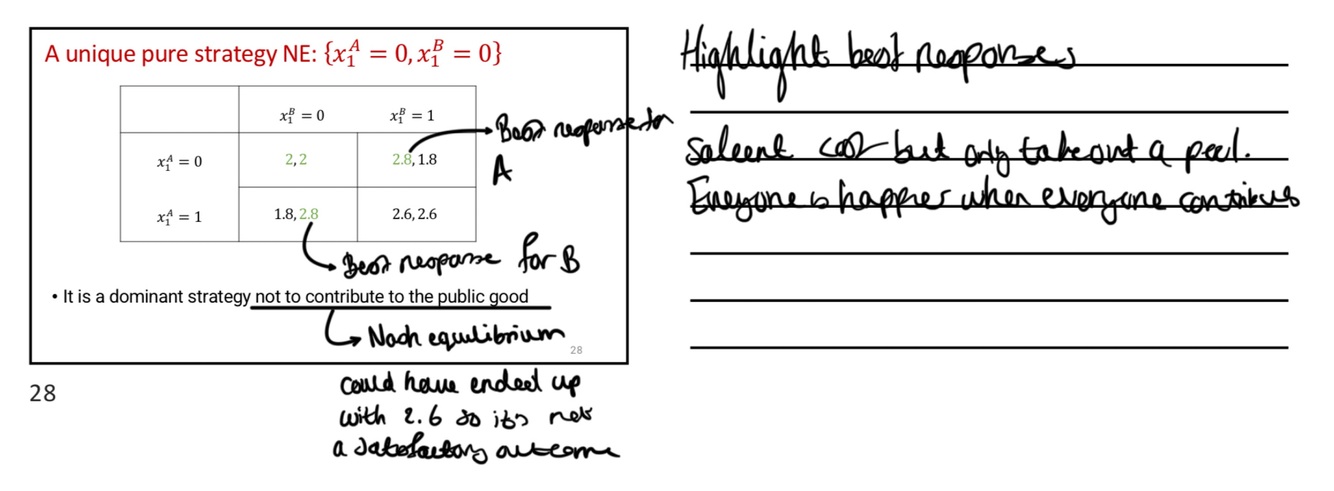 A unique pure strategy NE: {x₁ᴬ = 0, x₁ᴮ = 0}
x₁ᴮ = 0 x₁ᴮ = 1
x₁ᴬ = 0 2, 2 2.8, 1.8
x₁ᴬ = 1 1.8, 2.8 2.6, 2.6
Best response for
A
Best response for B
• It is a dominant strategy not to contribute to the public good
Nash equilibrium
28
28
could have ended up
with 2.6 so its not
a satisfactory outcome
Highlight best responses
but only take out a
Everyone is happier when everyone contributes